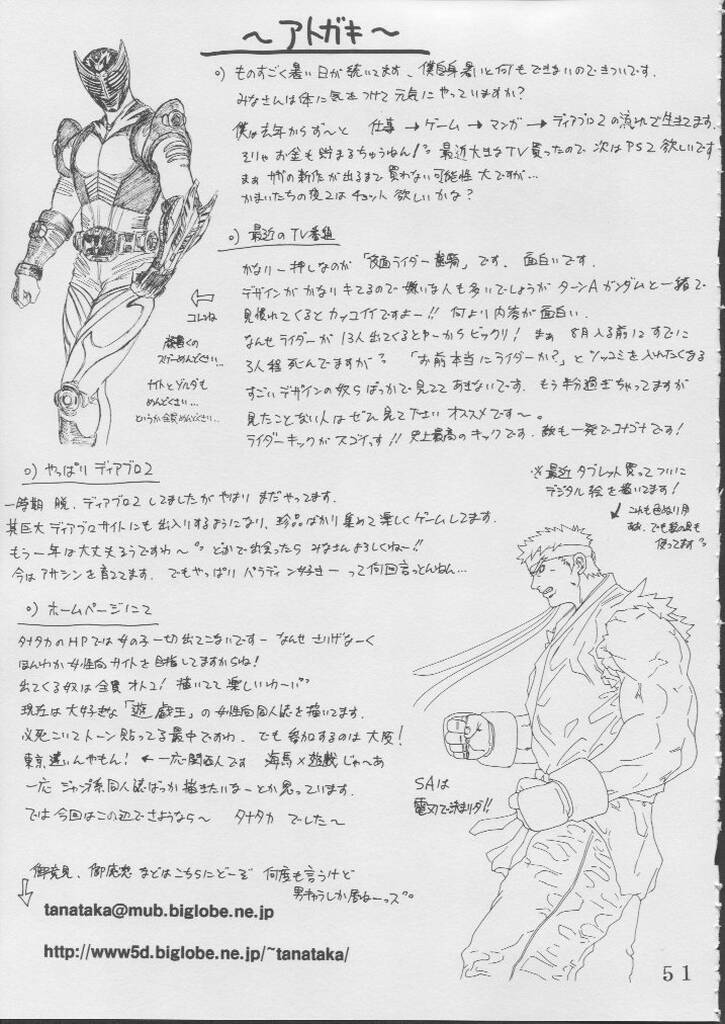 ～アトガキ～
○) ものすごく暑い日が続いてます、僕自身暑いと何もできないのできついです。
みなさんは体に気をつけて元気にやっていますか?
僕は去年からず～と 仕事→ゲーム→マンガ→ディアブロ2の流れで生きてます。
そりゃお金も貯まるちゅうねん!° 最近大きなTV買ったので次はPS2欲しいです
まあ サガの新作が出るまで買わない可能性大ですが…
かまいたちの夜2はチョット欲しいかな?
○) 最近のTV番組
かなり一押しなのが「仮面ライダー龍騎」です。面白いです。
デザインがかなりキてるので嫌いな人も多いでしょうがターンAガンダムと一緒で
見慣れてくるとカッコイイですよー!! 何より内容が面白い
なんせライダーが13人出てくるとやーからビックリ! まあ 8月入る前にすでに
3人程死んでますが° 「お前本当にライダーか?」とツッコミを入れたくなる
すごいデザインの奴らばっかで見ててあきないです。もう半分過ぎちゃってますが
見たことない人はぜひ見て下さい オススメです～。
ライダーキックがスゴイっす!! 史上最高のキックです。敵も一発でコナゴナです!
⇦
コレね
龍騎の
めんどくさい…
ナイトとゾルダも
めんどくさい…
というか全員めんどくさい…
○) やっぱりディアブロ2
一時期 脱、ディアブロ2 してましたがやはり まだやってます。
某巨大ディアブロサイトにも出入りするようになり、珍品ばかり集めて楽しくゲームしてます。
もう一年は大丈夫ろうですわ～° どこかで出会ったら みなさんよろしくねー!!
今はアサシンを育ててます。でもやっぱり パラディン好きーって何回言っとんねん…
※最近タブレット買ってついに
デジタル絵を描いてます!
○) ホームページにて
タナタカのHPでは女の子一切出てこないですー なんせ さりげなーく
ほんわか女性向サイトを目指してますからね!
出てくる奴は全員オトコ! 描いてて楽しいわ～°
現在は大好きな「遊戯王」の女性向同人誌を描いてます。
必死こいてトーン貼ってる最中ですわ、でも参加するのは大阪!
東京遠いんやもん! ←一応関西人です 海馬×遊戯じゃ～あ
一応ジャンプ系同人誌ばっか描きたいなーとか思っています。
では今回はこの辺でさようなら～ タナタカ でした～
SAは
電刃で決まりダ!!
御意見、御感想などはこちらにどーぞ 何度も言うけど
男キャラしか居ねーっス°
⇩
tanataka@mub.biglobe.ne.jp
http://www5d.biglobe.ne.jp/~tanataka/
51